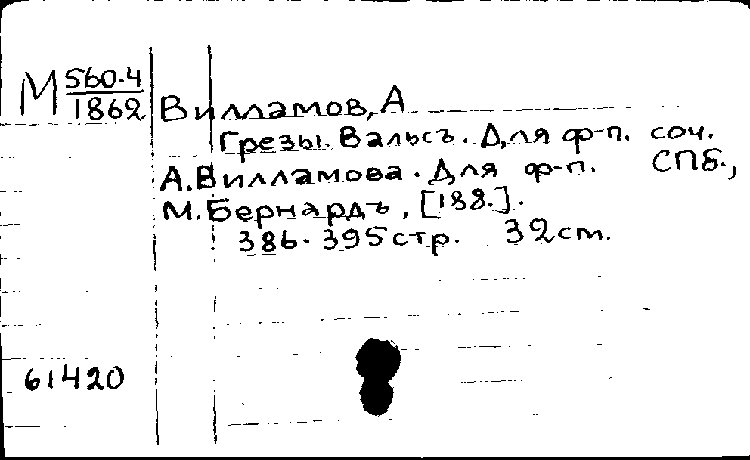 М 560.4
1862
Вилламов, А
Грезы. Вальсъ. Для ф-п. соч.
А. Вилламова. Для ф-п. СПб.,
М. Бернардъ, [188.].
386-395 стр. 32 см.
61420